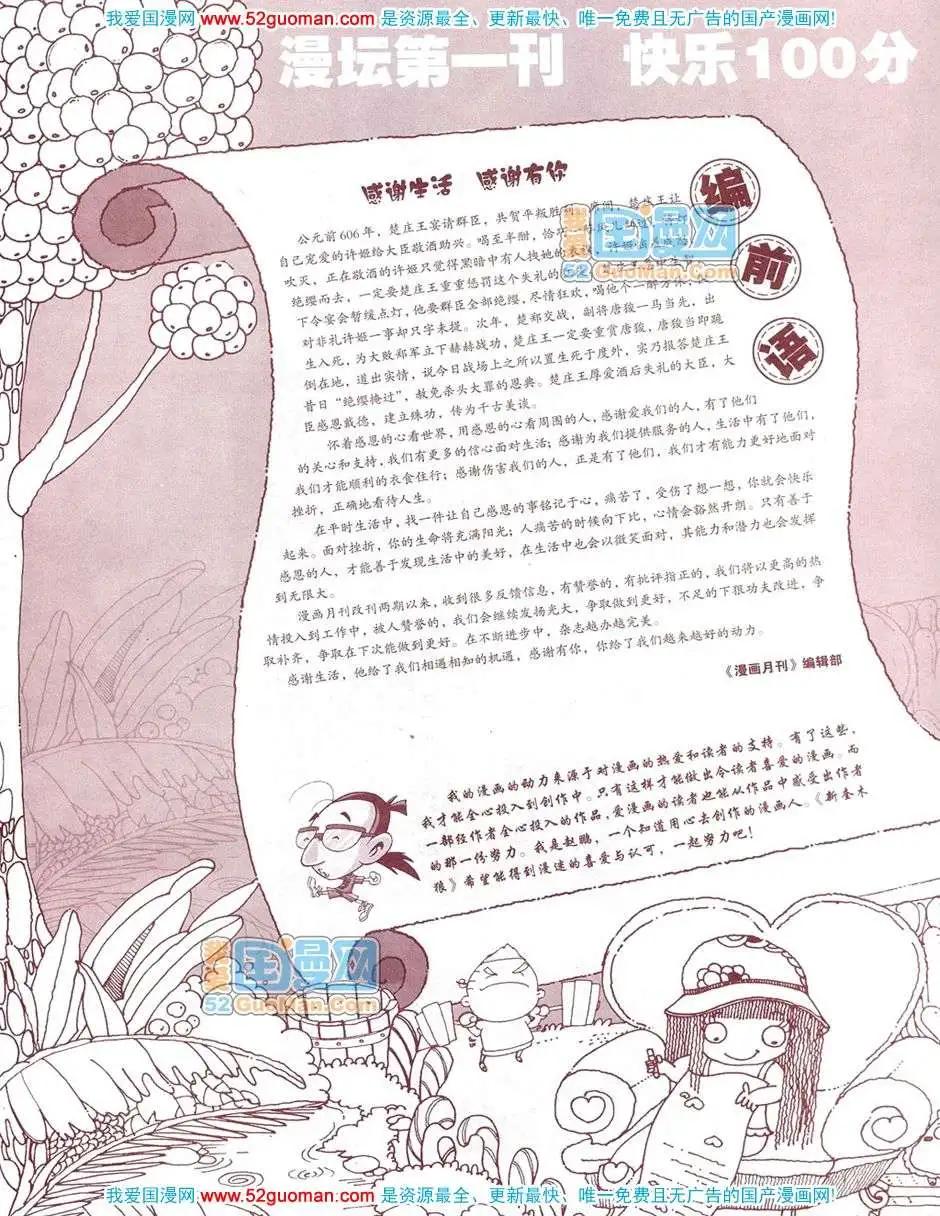 我爱国漫网 www.52guoman.com 是资源最全、更新最快、唯一免费且无广告的国产漫画网!
漫坛第一刊 快乐100分
编前语
感谢生活 感谢有你
公元前606年，楚庄王宴请群臣，共贺平叛胜利。席间，楚庄王让
自己宠爱的许姬给大臣敬酒助兴。喝至半酣，恰
吹灭，正在敬酒的许姬只觉得黑暗中有人拽她的衣
绝缨而去，一定要楚庄王重重惩罚这个失礼的
下令宴会暂缓点灯，他要群臣全部绝缨，尽情狂欢，喝他个一醉方休，
对非礼许姬一事却只字未提。次年，楚郑交战，副将唐狻一马当先，出
生入死，为大败郑军立下赫赫战功，楚庄王一定要重赏唐狻，唐狻当即跪
倒在地，道出实情，说今日战场上之所以置生死于度外，实乃报答楚庄王
昔日“绝缨掩过”，赦免杀头大罪的恩典。楚庄王厚爱酒后失礼的大臣，大
臣感恩戴德，建立殊功，传为千古美谈。
怀着感恩的心看世界，用感恩的心看周围的人，感谢爱我们的人，有了他们
的关心和支持，我们有更多的信心面对生活；感谢为我们提供服务的人，生活中有了他们，
我们才能顺利的衣食住行；感谢伤害我们的人，正是有了他们，我们才有能力更好地面对
挫折，正确地看待人生。
在平时生活中，找一件让自己感恩的事铭记于心，痛苦了，受伤了想一想，你就会快乐
起来。面对挫折，你的生命将充满阳光；人痛苦的时候向下比，心情会豁然开朗。只有善于
感恩的人，才能善于发现生活中的美好，在生活中也会以微笑面对，其能力和潜力也会发挥
到无限大。
漫画月刊改刊两期以来，收到很多反馈信息，有赞誉的，有批评指正的，我们将以更高的热
情投入到工作中，被人赞誉的，我们会继续发扬光大，争取做到更好，不足的下狠功夫改进，争
取补齐，争取在下次能做到更好。在不断进步中，杂志越办越完美。
感谢生活，他给了我们相遇相知的机遇，感谢有你，你给了我们越来越好的动力。
《漫画月刊》编辑部
我的漫画的动力来源于对漫画的热爱和读者的支持。有了这些，
我才能全心投入到创作中。只有这样才能做出令读者喜爱的漫画。而
一部经作者全心投入的作品，爱漫画的读者也能从作品中感受出作者
的那一份努力。我是赵鹏，一个知道用心去创作的漫画人。《新奎木
狼》希望能得到漫迷的喜爱与认可，一起努力吧！
国漫网
52GuoMan.Com
我爱国漫网 www.52guoman.com 是资源最全、更新最快、唯一免费且无广告的国产漫画网!